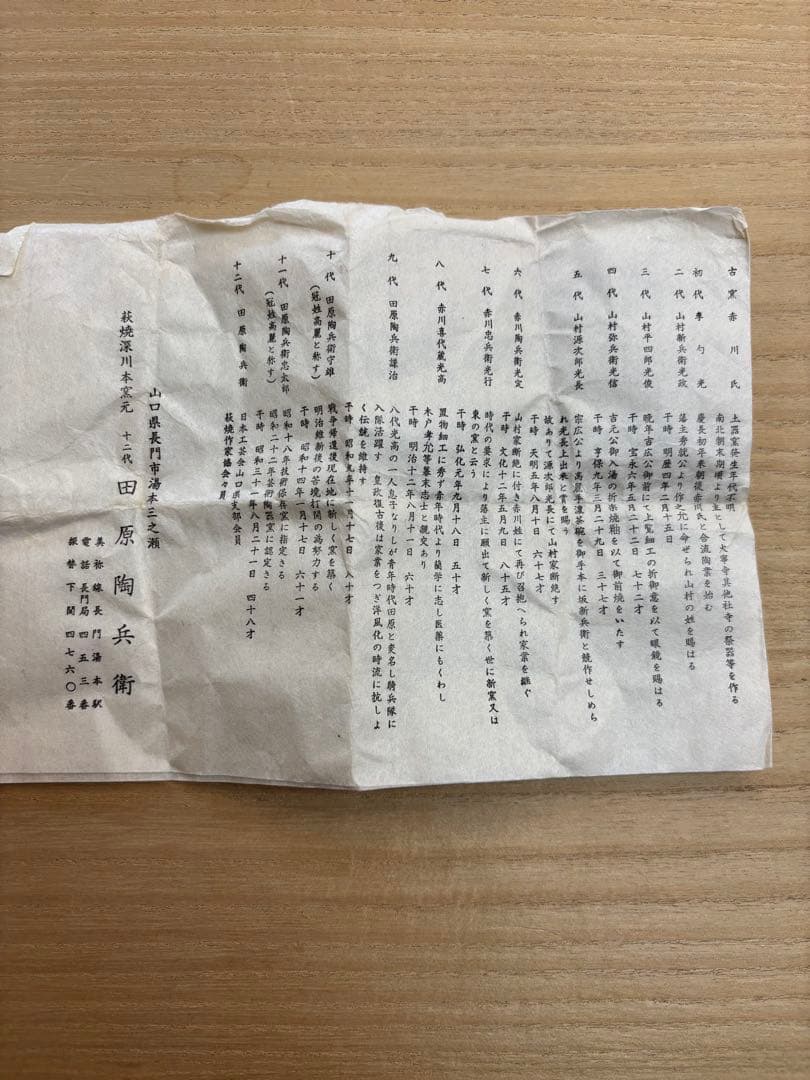 古窯 赤川氏 土器窯発生年代不明
南北朝末期頃より主として大寧寺其他社寺の祭器等を作る
初代 李勺光 慶長初年来朝後赤川氏と合流陶業を始む
二代 山村新兵衛光政 藩主秀就公より作之允に命ぜられ山村の姓を賜はる
干時 明暦四年二月十五日
三代 山村平四郎光俊 晩年吉広公御前にて上覧細工の折御意を以て眼鏡を賜はる
干時 宝永六年五月二十二日 七十二才
四代 山村弥兵衛光信 吉元公御入湯の折楽焼釉を以て御前焼をいたす
干時 享保九年三月二十九日 三十七才
五代 山村源次郎光長 宗広公より高麗手漉茶碗を御手本に坂新兵衛と競作せしめら
れ光長上出来と賞を賜う
故ありて源次郎光長にて山村家断絶す
干時 天明五年八月十日 六十七才
六代 赤川陶兵衛光定 山村家断絶に付き赤川姓にて再び召抱へられ家業を継ぐ
干時 文化十二年五月九日 八十五才
七代 赤川忠兵衛光行 時代の要求により藩主に願出て新しく窯を築く世に新窯又は
東の窯と云う
干時 弘化元年九月十八日 五十才
八代 赤川喜代蔵光高 置物細工に秀ず赤年時代より蘭学に志し医薬にもくわし
木戸孝允等幕末志士と親交あり
干時 明治十二年八月十一日 六十才
九代 田原陶兵衛謙治 八代光高の一人息子なりしが青年時代田原と変名し騎兵隊に
入隊活躍す 皇政復古後は家業をつぎ洋風化の時流に抗しよ
く伝統を維持す
干時 昭和九年十一月十七日 八十才
十代 田原陶兵衛守雄
(冠姓高麗と称す) 戦争帰還後現在地に新しく窯を築く
明治維新後の苦境打開の為努力する
干時 昭和十四年一月十七日 六十一才
十一代 田原陶兵衛忠太郎
(冠姓高麗と称す) 昭和十八年技術保存窯に指定さる
昭和二十二年芸術陶器窯に認定さる
干時 昭和三十一年八月二十一日 四十八才
十二代 田原陶兵衛 日本工芸会山口県支部会員
萩焼作家協会々員
山口県長門市湯本三之瀬
萩焼深川本窯元 十二代 田原陶兵衛
美祢線長門湯本駅
電話長門局四五三番
振替下関四七六〇番